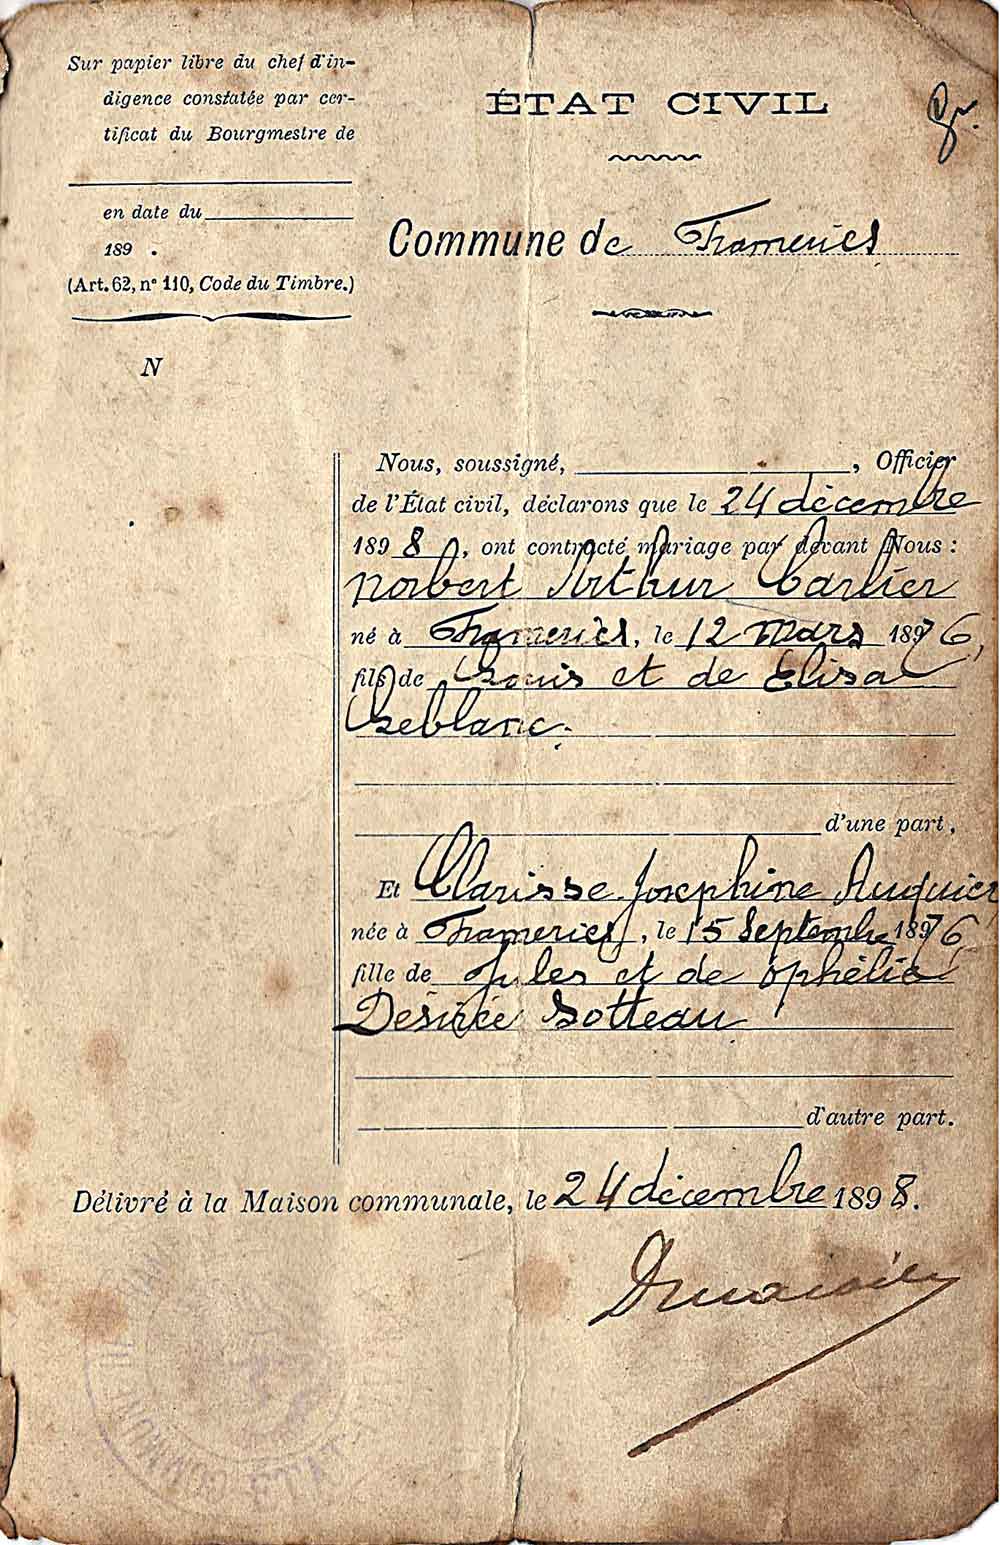 Sur papier libre du chef d'in-
digence constatée par cer-
tificat du Bourgmestre de
en date du
189 .
(Art. 62, n° 110, Code du Timbre.)
N
ÉTAT CIVIL
Commune de Frameries
Nous, soussigné, , Officier
de l'État civil, déclarons que le 24 décembre
1898, ont contracté mariage par devant Nous :
Norbert Arthur Carlier
né à Frameries, le 12 mars 1876,
fils de Louis et de Elisa
Leblanc.
d'une part,
Et Clarisse Josephine Auquier
née à Frameries, le 15 Septembre 1876
fille de Jules et de Ophélie
Désirée Sotteau
d'autre part.
Délivré à la Maison communale, le 24 décembre 1898.
COMMUNE
ETAT